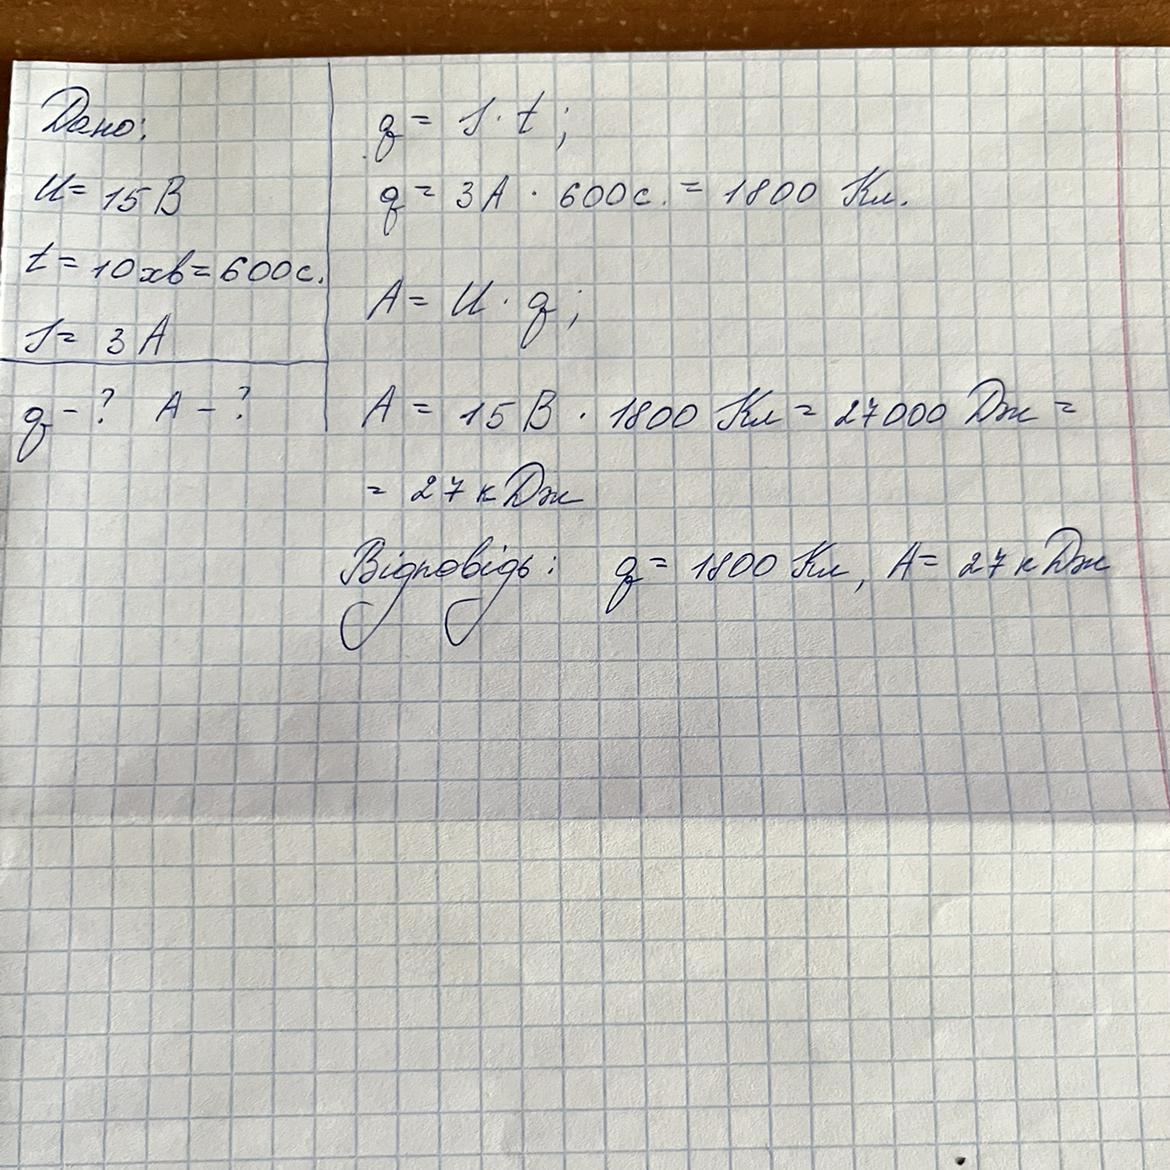 Дано:
U = 15 В
t = 10 хв = 600 с.
I = 3 А
q - ? A - ?
q = I · t ;
q = 3А · 600 с. = 1800 Кл.
A = U · q ;
A = 15 В · 1800 Кл = 27000 Дж =
= 27 кДж
Відповідь: q = 1800 Кл, A = 27 кДж